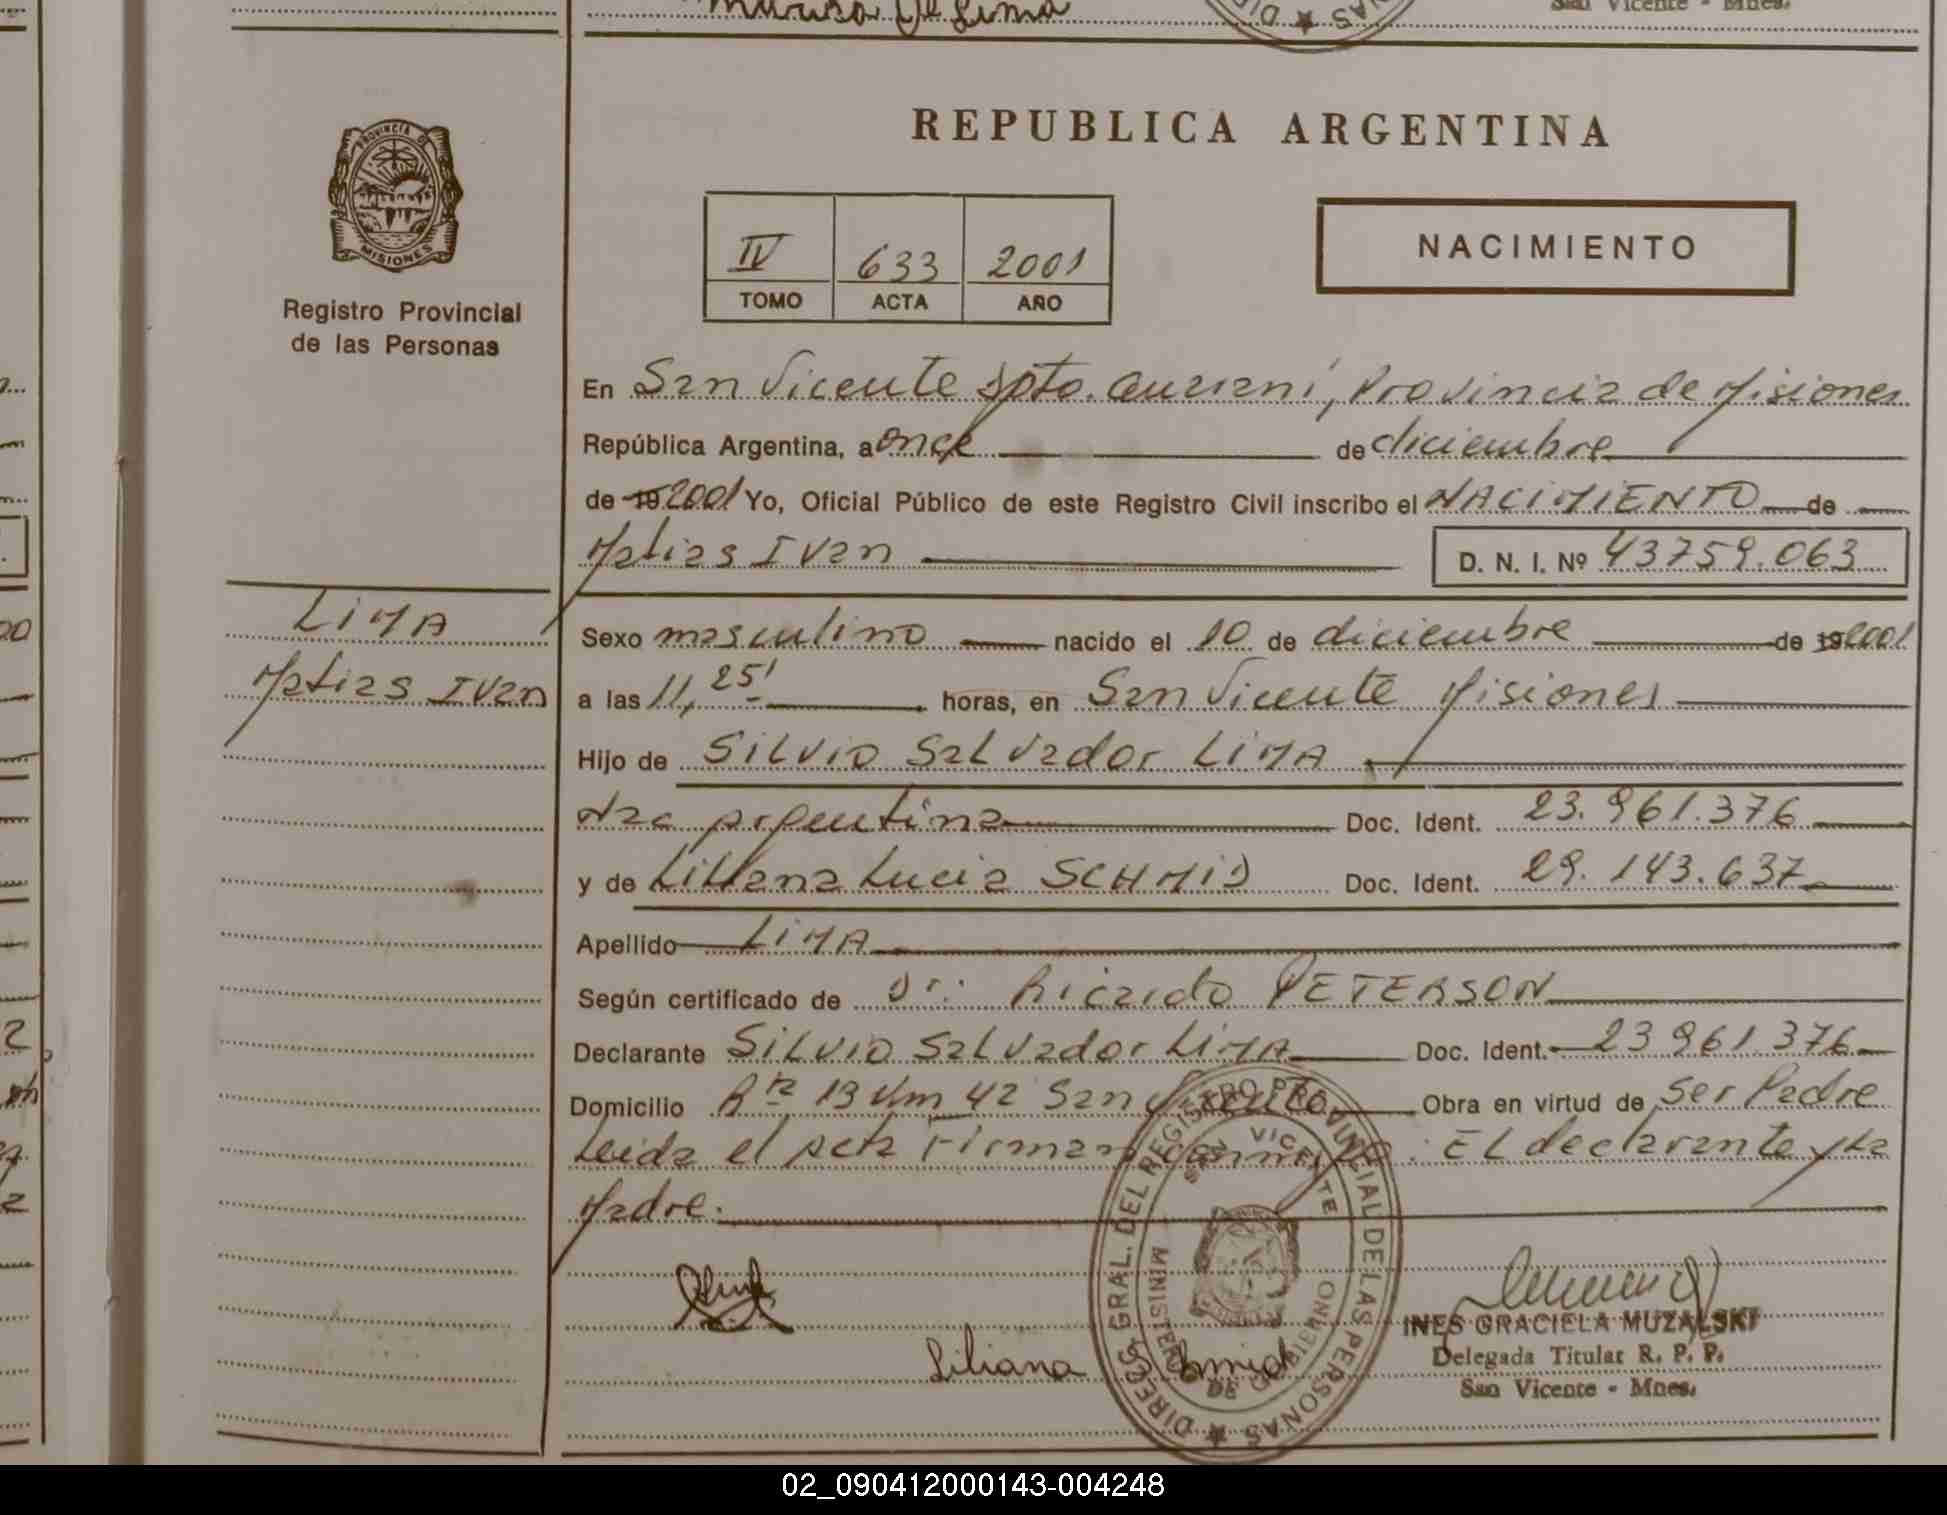 San Vicente - Mnes.
REPUBLICA ARGENTINA
PROVINCIA DE
MISIONES
Registro Provincial
de las Personas
IV 633 2001
TOMO ACTA AÑO
NACIMIENTO
En San Vicente Dpto. Guaraní, Provincia de Misiones
República Argentina, a once de diciembre
de 19 2001 Yo, Oficial Público de este Registro Civil inscribo el NACIMIENTO de
Matias Ivan D. N. I. Nº 43759.063
LIMA
Matias Ivan
Sexo masculino nacido el 10 de diciembre de 19 2001
a las 11,25' horas, en San Vicente Misiones
Hijo de Silvio Salvador LIMA
Nac argentina Doc. Ident. 23.961.376
y de Liliana Lucia SCHMID Doc. Ident. 29.143.637
Apellido LIMA
Según certificado de Dr: Ricardo PETERSON
Declarante Silvio Salvador LIMA Doc. Ident. 23961.376
Domicilio Rta 13 Km 42 San Vicente Obra en virtud de Ser Padre
Leida el acta Firman conmigo: El declarante y La
Madre.
DIREC. GRAL. DEL REGISTRO PROVINCIAL DE LAS PERSONAS
SAN VICENTE
MINISTERIO DE GOBIERNO
Liliana Schmid
INES GRACIELA MUZALSKI
Delegada Titular R. P. P.
San Vicente - Mnes.
02_090412000143-004248